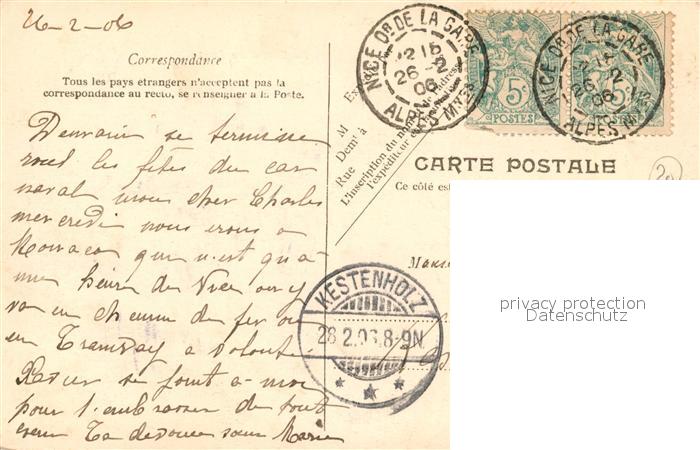 26-2-06
Correspondance
Tous les pays étrangers n'acceptent pas la
correspondance au recto, se renseigner à la Poste.
Demain se termine
les fêtes du car
naval mon cher Charles
mercredi nous irons à
Monaco qui n'est qu'à
une heure de Nice on y
va en chemin de fer ou
en Tramway a volonté
se joint a moi
pour t'embrasser de tout
cœur Ta sœur Marie
NICE Dr. DE LA GARE
26 2
06
ALPES MMES
NICE Dr. DE LA GARE
26 2
06
ALPES
5c
POSTES
5c
POSTES
Exp
M
Demt à
Rue
L'inscription du nom
l'expéditeur
CARTE POSTALE
Ce côté est
KESTENHOLZ
28.2.06.8-9N
20
privacy protection
Datenschutz